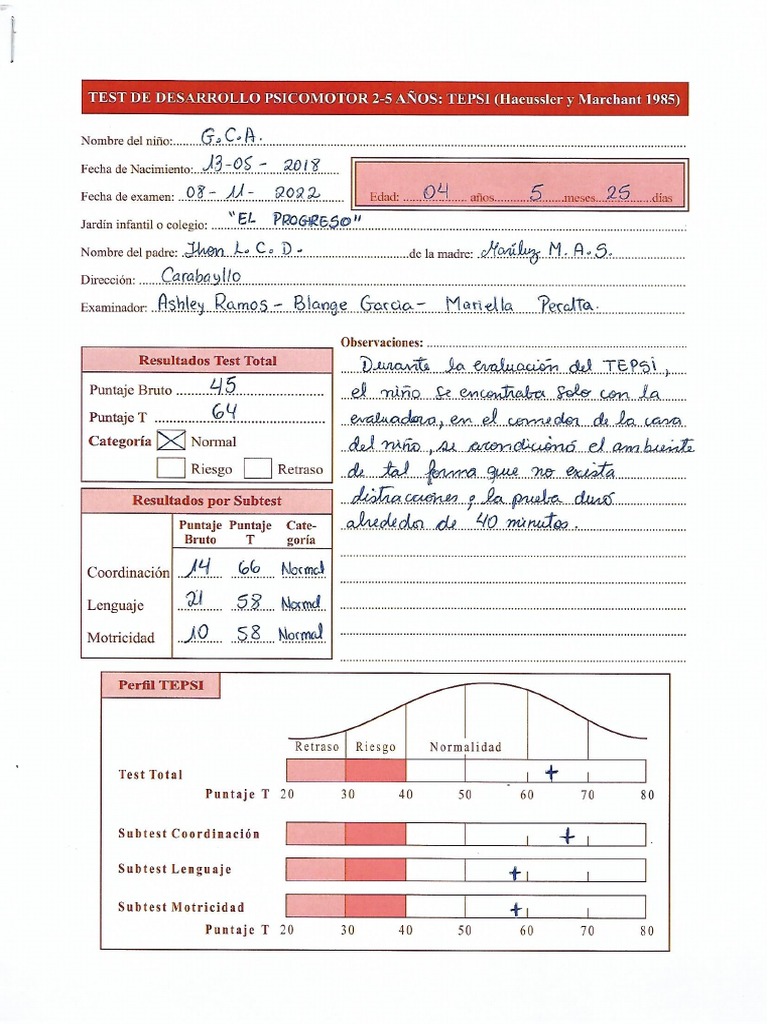 TEST DE DESARROLLO PSICOMOTOR 2-5 AÑOS: TEPSI (Haeussler y Marchant 1985)
Nombre del niño: G.C.A.
Fecha de Nacimiento: 13-05-2018
Fecha de examen: 08-11-2022
Edad: 04 años 5 meses 25 días
Jardín infantil o colegio: "EL PROGRESO"
Nombre del padre: Jhon L.C.D. de la madre: Mariluz M.A.S.
Dirección: Carabayllo
Examinador: Ashley Ramos - Blange Garcia - Mariella Peralta.
Resultados Test Total
Puntaje Bruto 45
Puntaje T 64
Categoría Normal
Riesgo Retraso
Resultados por Subtest
Puntaje Bruto Puntaje T Cate-goría
Coordinación 14 66 Normal
Lenguaje 21 58 Normal
Motricidad 10 58 Normal
Observaciones:
Durante la evaluación del TEPSI,
el niño se encontraba solo con la
evaluadora, en el comedor de la casa
del niño, se acondicionó el ambiente
de tal forma que no exista
distracciones y la prueba duró
alrededor de 40 minutos.
Perfil TEPSI
Retraso Riesgo Normalidad
Test Total
Puntaje T 20 30 40 50 60 70 80
Subtest Coordinación
Subtest Lenguaje
Subtest Motricidad
Puntaje T 20 30 40 50 60 70 80